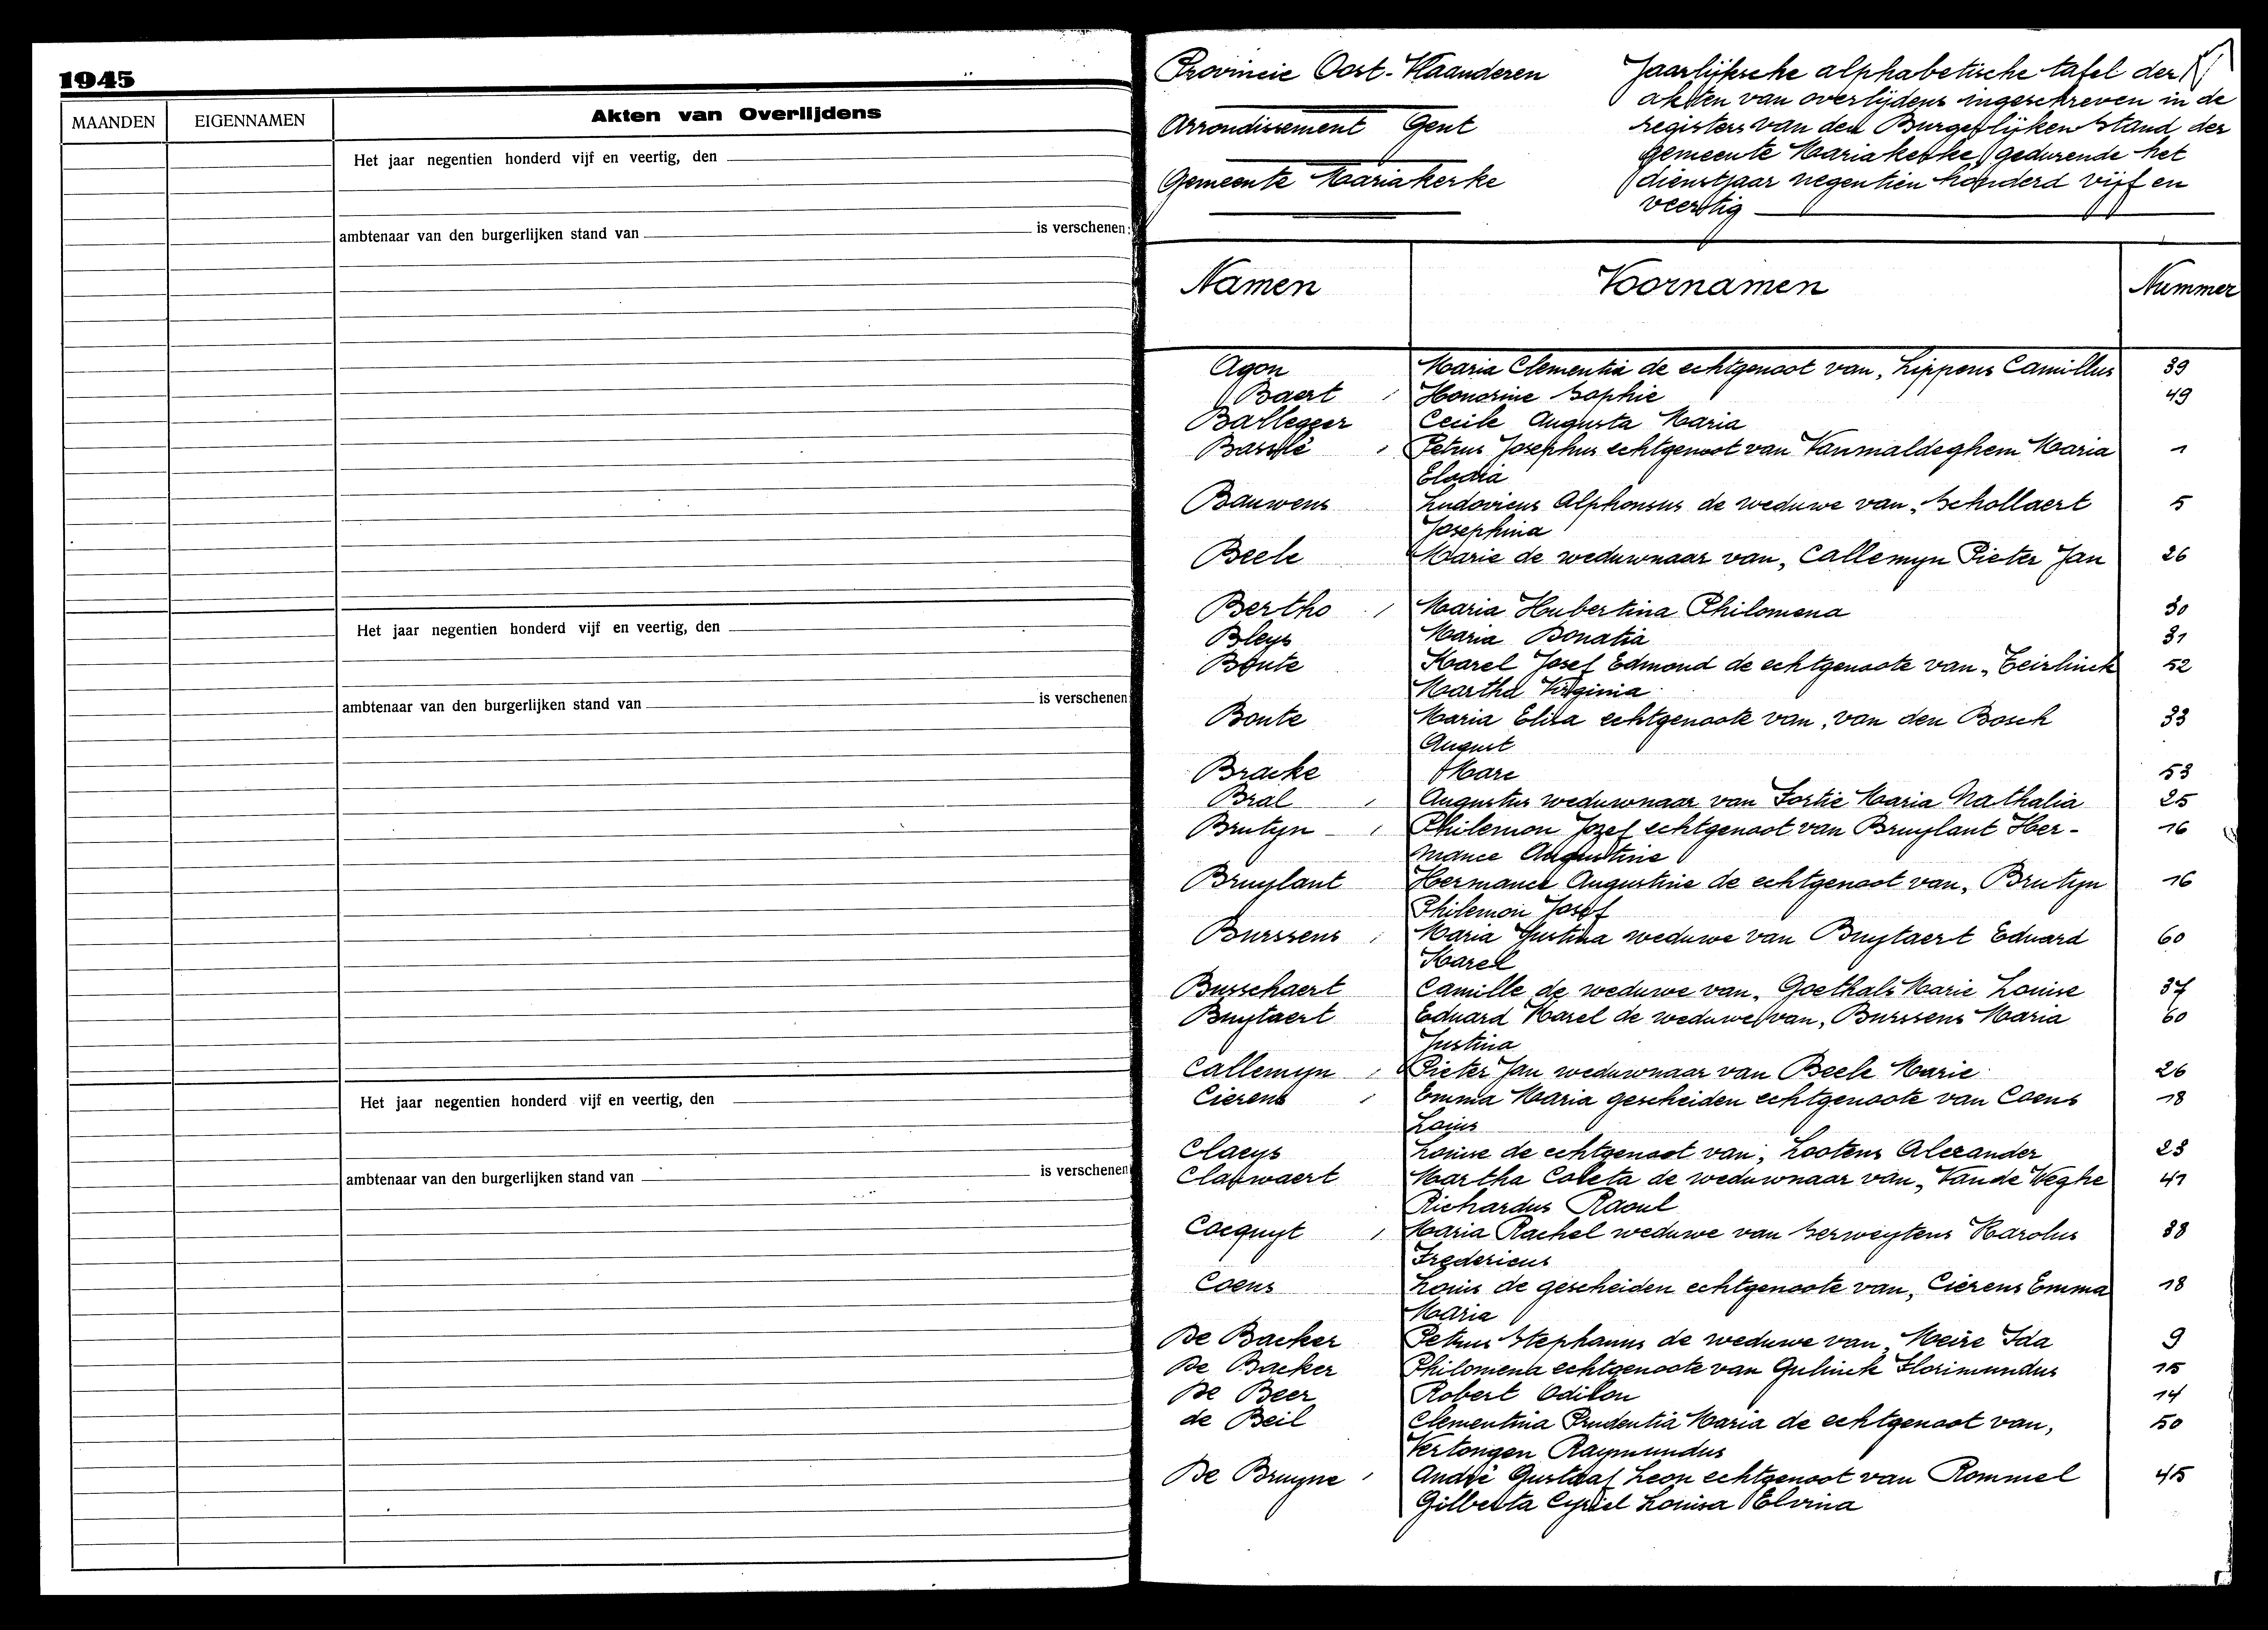 1945
MAANDEN EIGENNAMEN Akten van Overlijdens
Het jaar negentien honderd vijf en veertig, den
ambtenaar van den burgerlijken stand van is verschenen:
Het jaar negentien honderd vijf en veertig, den
ambtenaar van den burgerlijken stand van is verschenen
Het jaar negentien honderd vijf en veertig, den
ambtenaar van den burgerlijken stand van is verschenen
Provincie Oost-Vlaanderen
Arrondissement Gent
Gemeente Mariakerke
Jaarlijksche alphabetische tafel der
akten van overlijdens ingeschreven in de
registers van den Burgerlijken Stand der
gemeente Mariakerke gedurende het
dienstjaar negentien honderd vijf en
veertig
Namen Voornamen Nummer
Agon Maria Clementia de echtgenoot van, Lippens Camillus 39
Baert Honorine Sophie 49
Ballegeer Cecile Augusta Maria
Basslé Petrus Josephus echtgenoot van Vanmaldeghem Maria 1
Elodia
Bauwens Ludovicus Alphonsus de weduwe van, Schollaert 5
Josephina
Beele Marie de weduwnaar van, Callemyn Pieter Jan 26
Bertho Maria Hubertina Philomena 30
Bleys Maria Donatia 31
Bonte Karel Josef Edmond de echtgenoote van, Teirlinck 52
Martha Virginia
Bonte Maria Elisa echtgenoote van, van den Bosch 33
August
Bracke Marc 53
Bral Augustus weduwnaar van Fortie Maria Nathalia 25
Brutyn Philemon Jozef echtgenoot van Bruylant Her- 16
mance Augustine
Bruylant Hermance Augustine de echtgenoot van, Brutyn 16
Philemon Josef
Burssens Maria Justina weduwe van Buytaert Eduard 60
Karel
Busschaert Camille de weduwe van, Goethals Marie Louise 37
Buytaert Eduard Karel de weduwe van, Burssens Maria 60
Justina
Callemyn Pieter Jan weduwnaar van Beele Marie 26
Cierens Emma Maria gescheiden echtgenoote van Coens 18
Louis
Claeys Louise de echtgenoot van, Lootens Alexander 23
Clauwaert Martha Coleta de weduwnaar van, Van de Weghe 41
Richardus Raoul
Cocquyt Maria Rachel weduwe van Serweytens Karolus 38
Fredericus
Coens Louis de gescheiden echtgenoote van, Cierens Emma 18
Maria
De Backer Petrus Stephanus de weduwe van, Meire Ida 9
De Backer Philomena echtgenoote van Gulinck Florimundus 15
De Beer Robert Odilon 14
de Beil Clementina Prudentia Maria de echtgenoot van, 50
Vertongen Raymundus
De Bruyne André Gustaaf Leon echtgenoot van Rommel 45
Gilberta Cyriel Louisa Elvina